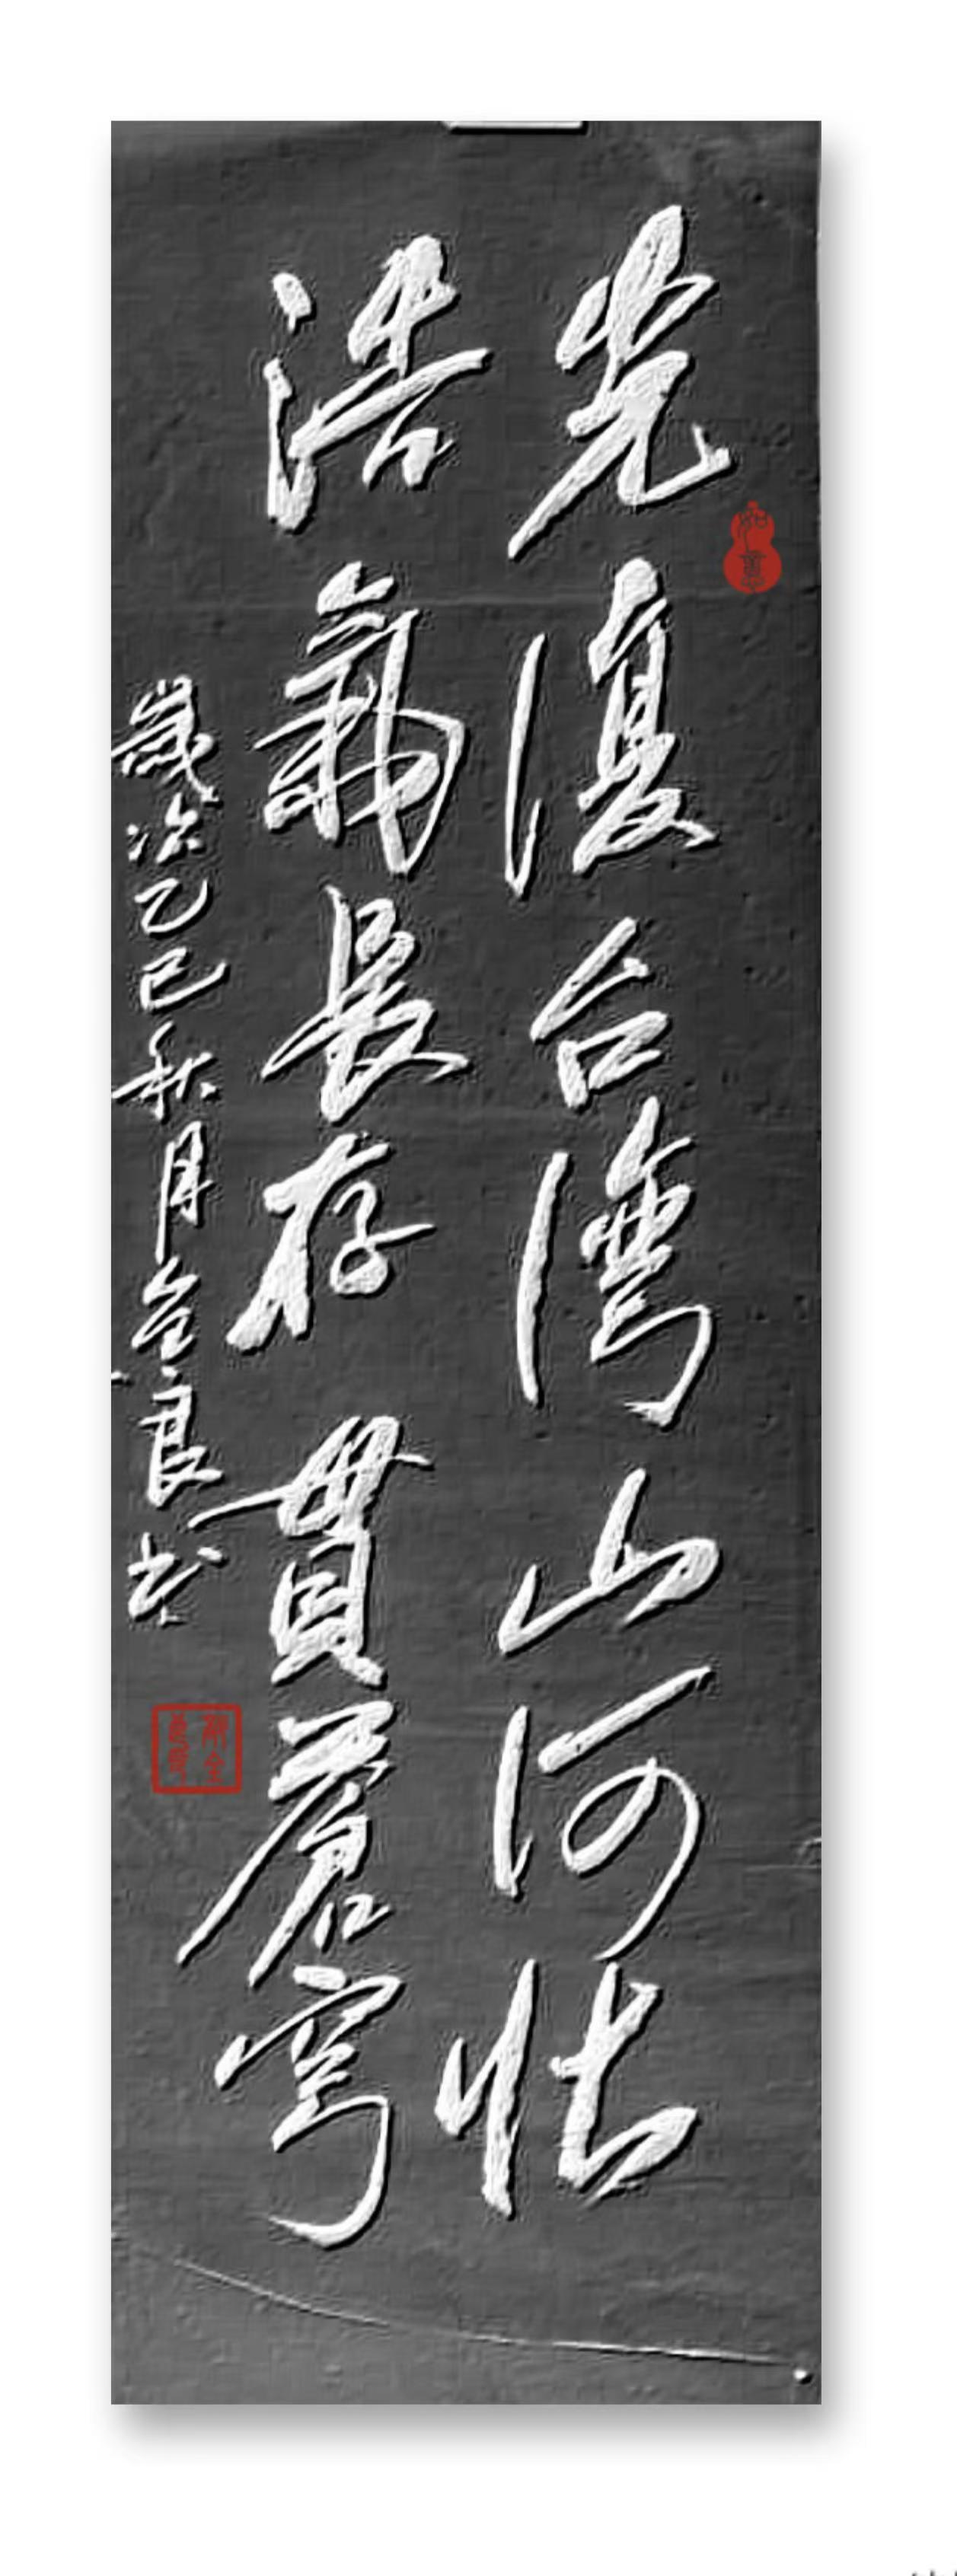 光復台灣山河壯
浩氣長存貫蒼穹
歲次乙巳秋月全良书